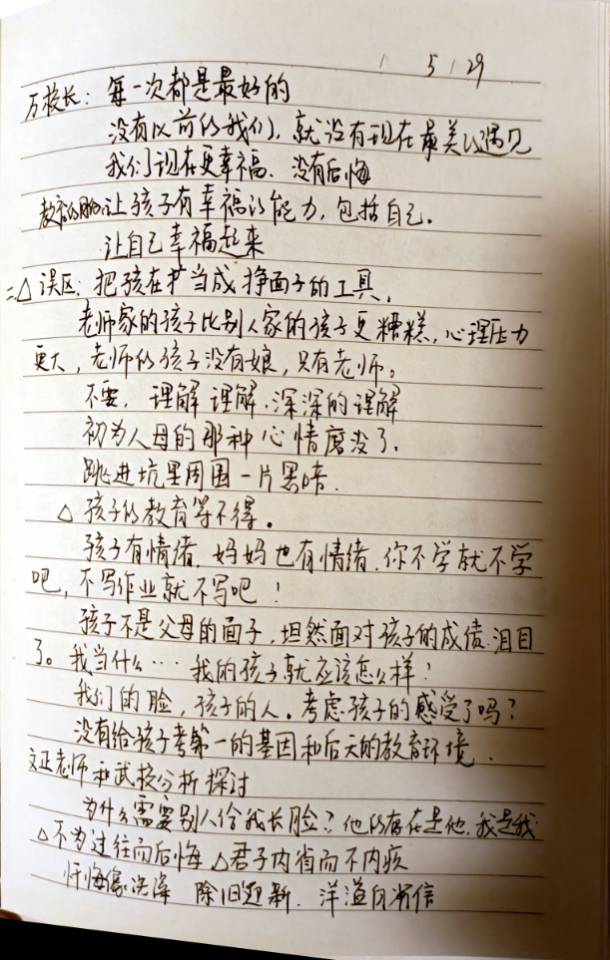 5 29
万校长：每一次都是最好的
没有以前的我们，就没有现在最美的遇见
我们现在更幸福，没有后悔
教育的目的：让孩子有幸福的能力，包括自己。
让自己幸福起来
二、△误区：把孩在扩当成挣面子的工具，
老师家的孩子比别人家的孩子更糟糕，心理压力
更大，老师的孩子没有娘，只有老师。
不要，理解 理解 深深的理解
初为人母的那种心情磨没了，
跳进坑里周围一片黑暗.
△孩子的教育等不得。
孩子有情绪，妈妈也有情绪，你不学就不学
吧，不写作业就不写吧！
孩子不是父母的面子，坦然面对孩子的成绩 泪目
了。我当什么…我的孩子就应该怎么样？
我们的脸，孩子的人。考虑孩子的感受了吗？
没有给孩子考第一的基因和后天的教育环境.
文正老师和武校分析探讨
为什么需要别人给我长脸？他的存在是他，我是我
△不为过往而后悔 △君子内省而不内疚
忏悔像洗澡 除旧迎新. 洋溢自信